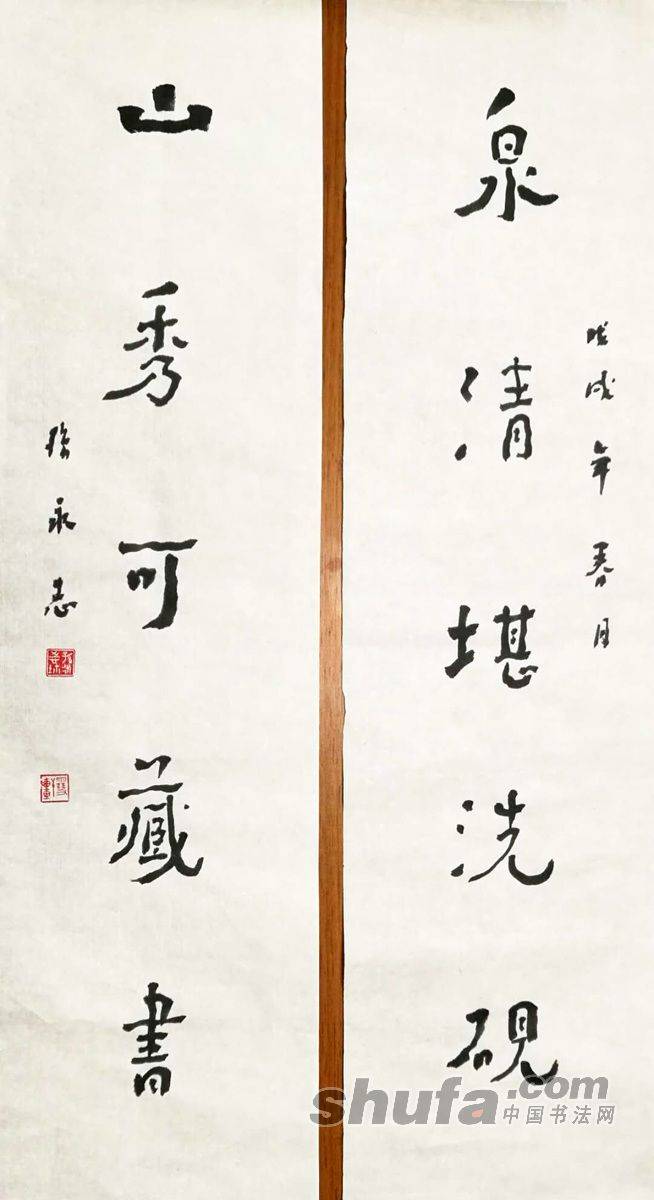 泉清堪洗硯
戊戌年春月
山秀可藏書
永志
shufa.com
中国书法网